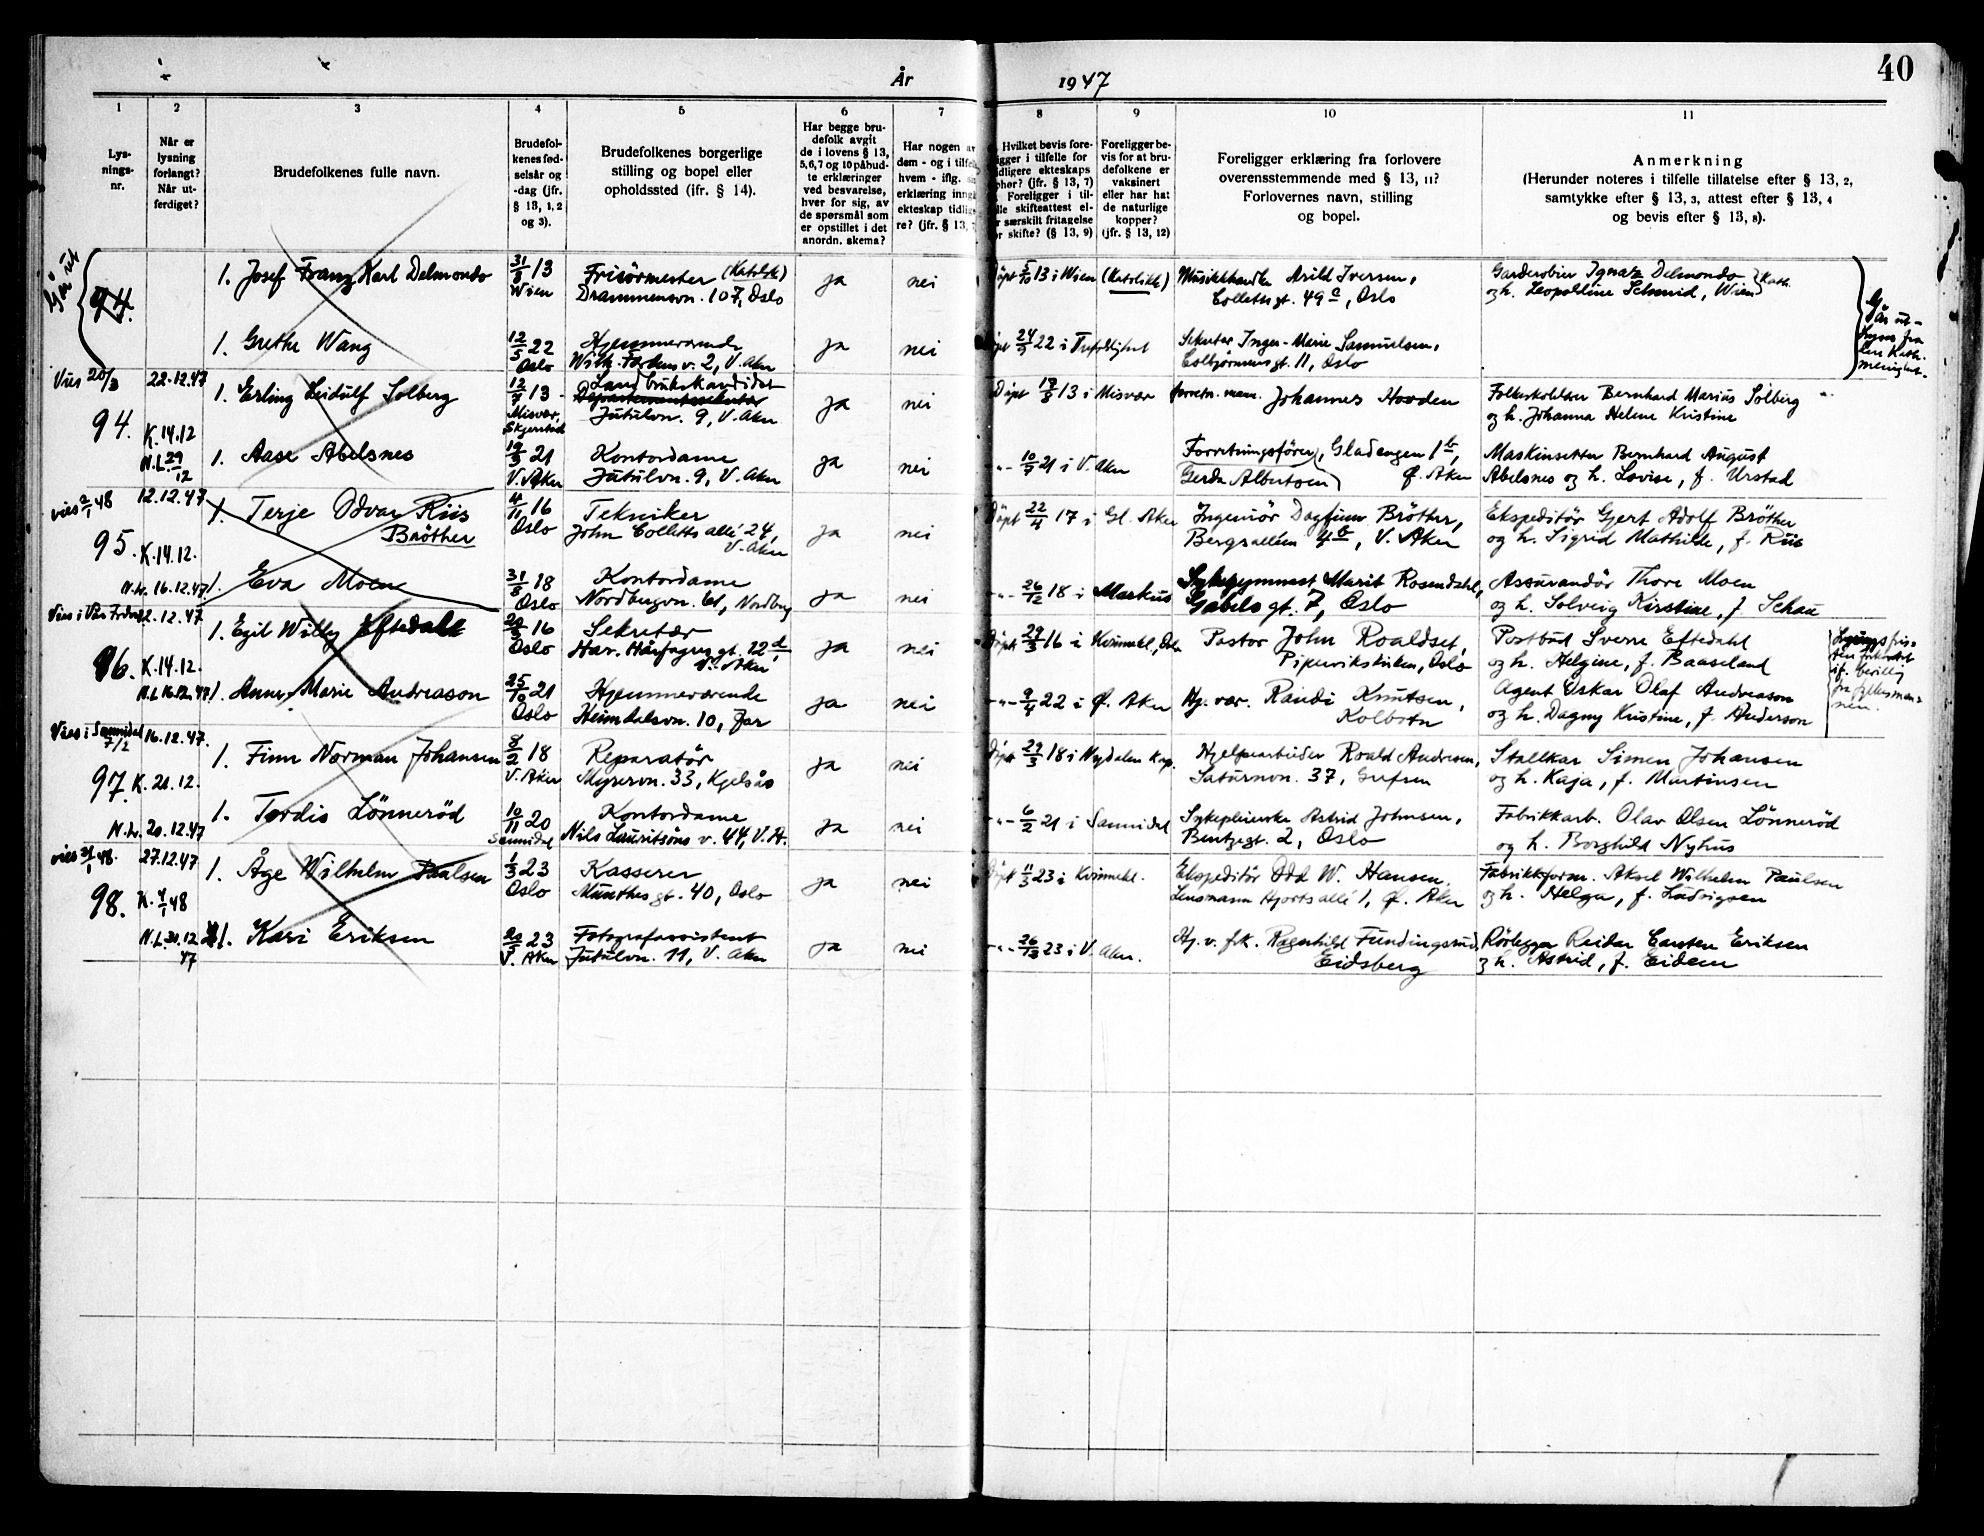 40
År 1947
1 2 3 4 5 6 7 8 9 10 11
Lys-
nings-
nr.
Når er
lysning
forlangt?
Når ut-
ferdiget?
Brudefolkenes fulle navn.
Brudefol-
kenes fød-
selsår og
-dag (jfr.
§ 13, 1, 2
og 3).
Brudefolkenes borgerlige
stilling og bopel eller
opholdssted (ifr. § 14).
Har begge bru-
defolk avgit
de i lovens § 13,
5, 6, 7 og 10 påbud-
te erklæringer
ved besvarelse,
hver for sig, av
de spørsmål som
er opstillet i det
anordn. skema?
Har nogen av
dem - og i tilfelle
hvem - iflg.
erklæring inngå
ekteskap tidlig
re? (jfr. § 13,
Hvilket bevis fore-
igger i tilfelle for
idligere ekteskaps
phør? (jfr. § 13, 7)
Foreligger i til-
lle skifteattest el-
r særskilt fritagelse
or skifte? (§ 13, 9)
Foreligger be-
vis for at bru-
defolkene er
vaksinert
eller har hat
de naturlige
kopper?
(jfr. § 13, 12)
Foreligger erklæring fra forlovere
overensstemmende med § 13, 11?
Forlovernes navn, stilling
og bopel.
Anmerkning
(Herunder noteres i tilfelle tillatelse efter § 13, 2,
samtykke efter § 13, 3, attest efter § 13, 4
og bevis efter § 13, 8).
94.
1. Josef Franz Karl Delmondo
31/8 13
Wien
Frisörmester (Katolsk)
Drammensvn. 107, Oslo
ja nei
Döpt 5/10 13 i Wien (Katolikk)
Musikkhandler Arild Iversen,
Collettsgt. 49 c, Oslo
Garderobier Ignaz Delmondo
og h. Leopoldine Schmid, Wien } Kath.
1. Grethe Wang
12/5 22
Oslo
Hjemmeværende
Wilh. Færdens v. 2, V. Aker
ja nei
24/9 22 i Trefoldighet
Sekretær Inger-Marie Samuelsen,
Colbjörnsens gt. 11, Oslo
Vies 20/3
94.
22.12.47
K. 14.12
N.L. 29/12
1. Erling Leidulf Solberg
12/7 13
Misvær,
Skjerstad
Landbrukskandidat
Departementssekretær
Jutulvn. 9, V. Aker
ja nei
Döpt 17/8 13 i Misvær
forretn. mann. Johannes Hovden
Folkeskolelær Bernhard Marius Solberg
og h. Johanna Helene Kristine
1. Aase Abelsnes
19/3 21
V. Aker
Kontordame
Jutulvn. 9, V. Aker
ja nei
-"- 10/7 21 i V. Aker
Forretningsfører, Gladengen 1 b,
Gerda Albertsen Ø. Aker
Maskinsetter Bernhard August
Abelsnes og h. Lovise, f. Urstad
vies 2/1 48
95.
12.12.47
K. 14.12.
N.L. 16.12.47
1. Terje Odvar Riis
Bröther
4/11 16
Oslo
Tekniker
John Colletts allé 24,
V. Aker
ja nei
Döpt 22/4 17 i Gl. Aker
Ingeniör Dagfinn Bröther,
Bergsalléen 4 b, V. Aker
Ekspeditör Gjert Adolf Bröther
og h. Sigrid Mathilde, f. Riis
1. Eva Moen
31/8 18
Oslo
Kontordame
Nordbergvn. 61, Nordberg
ja nei
-"- 26/12 18 i Markus
Sykegymnast Marit Rosendahl,
Gabels gt. 7, Oslo
Assurandör Thore Moen
og h. Solveig Kirstine, f. Schau
Vies i Vår Frelser
96.
12.12.47
K. 14.12.
N.L. 16.12.47
1. Egil Willy Eftedahl
16
Oslo
Sekretær
Har. Hårfagres gt. 12 d
V. Aker
ja nei
Döpt 29/3 16 i Krinnekl, Oslo
Pastor John Roaldset,
Pipervikskirken, Oslo
Postbud Sverre Eftedahl
og h. Helgine, f. Baaseland
1. Anne-Marie Andreason
25/10 21
Oslo
Hjemmeværende
Heimdalsvn. 10, Jar
ja nei
-"- 9/4 22 i Ø. Aker
Hj. vær. Randi Knutsen,
Kolbotn
Agent Oskar Olaf Andreason
og h. Dagny Kristine, f. Anderson
Vies i Sannidal
7/2
97.
16.12.47.
K. 21.12.
N.L. 20.12.47
1. Finn Norman Johansen
8/2 18
V. Aker
Reparatør
Myrervn. 33, Kjelsås
ja nei
Döpt 29/3 18 i Nydalen Kap.
Hjelpearbeider Roald Andresen,
Saturnvn. 37, Grefsen
Stallkar Simen Johansen
og h. Kaja, f. Martinsen
1. Tordis Lönneröd
10/11 20
Sannidal
Kontordame
Nils Lauritsöns v. 44, V.A.
ja nei
-"- 6/2 21 i Sannidal
Sykepleierske Astrid Johnsen,
Bentzegt. 2, Oslo
Fabrikkarb. Olav Olsen Lönneröd
og h. Borghild Nyhus
vies 31/1 48.
98.
27.12.47
K. 4/1 48
N.L. 30.12
47
1. Åge Wilhelm Paulsen
1/3 23
Oslo
Kasserer
Munthes gt. 40, Oslo
ja nei
Döpt 11/3 23 i Krinnekl.
Ekspeditör Odd W. Hansen
Lensmann Hjorts allé 1, Ø. Aker
Fabrikkform. Aksel Wilhelm Paulsen
og h. Helga, f. Ludvigsen
1. Kari Eriksen
23
V. Aker
Fotografassistent
Jutulvn. 11, V. Aker
ja nei
-"- 26/12 23 i V. Aker.
Hj. v. frk. Ragnhild Fundingsrud,
Eidsberg
Rörlegger Reidar Carsten Eriksen
og h. Astrid, f. Eidem